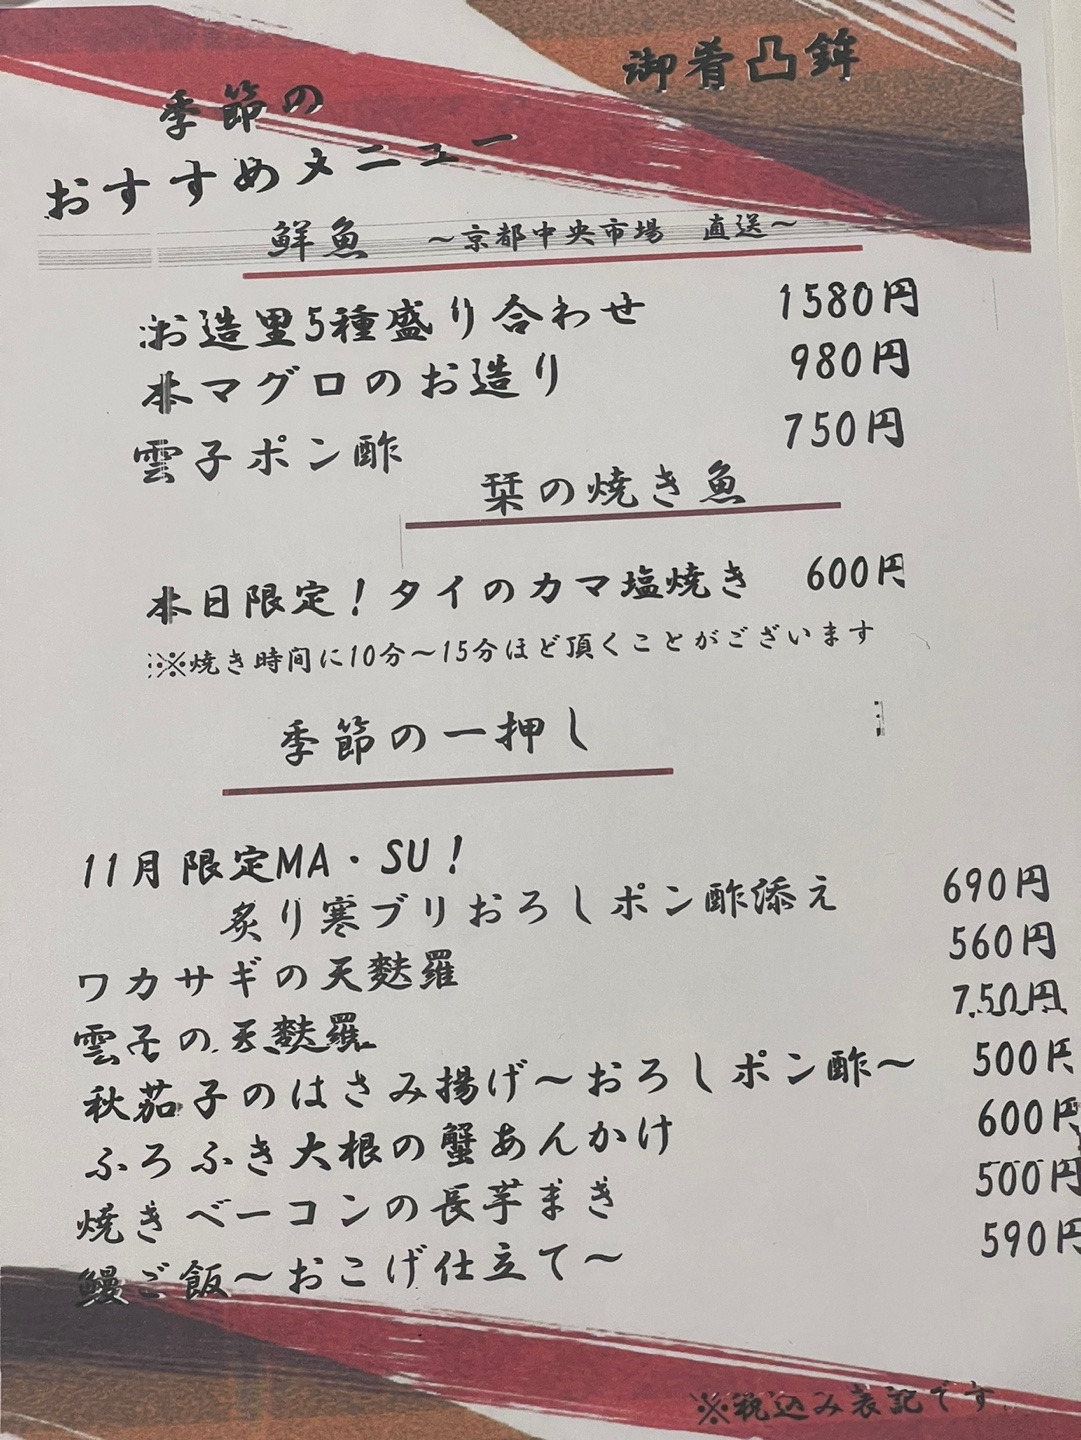 御肴凸鉾
季節の
おすすめメニュー
鮮魚 ～京都中央市場 直送～
お造里5種盛り合わせ 1580円
本マグロのお造り 980円
雲子ポン酢 750円
栞の焼き魚
本日限定！タイのカマ塩焼き 600円
※焼き時間に10分～15分ほど頂くことがございます
季節の一押し
11月限定MA・SU！
炙り寒ブリおろしポン酢添え 690円
ワカサギの天麩羅 560円
雲子の天麩羅 750円
秋茄子のはさみ揚げ～おろしポン酢～ 500円
ふろふき大根の蟹あんかけ 600円
焼きベーコンの長芋まき 500円
鰻ご飯～おこげ仕立て～ 590円
※税込み表記です